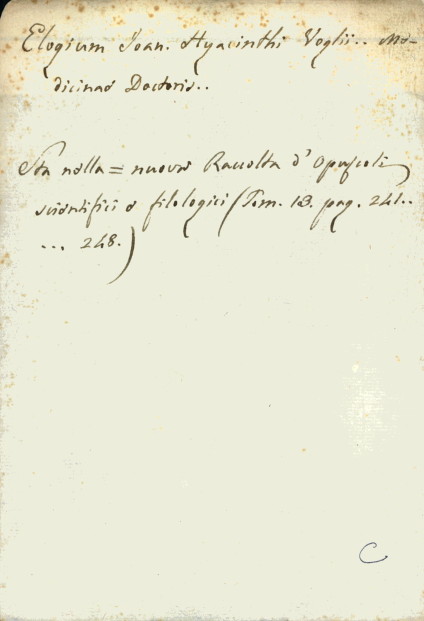 Elogium Joan. Hyacinthi Voglii.. Me-
dicinae Doctoris..
Sta nella = nuova Raccolta d'Opuscoli
scientifici e filologici (Tom. 18. pag. 241..
... 248.)
C